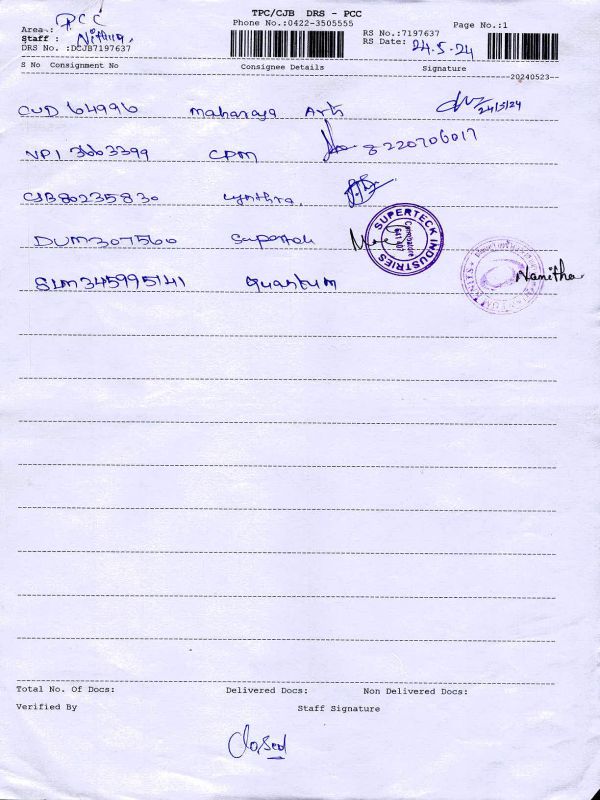 TPC/CJB DRS - PCC
Area : PCC
Phone No.:0422-3505555
Page No.:1
Staff : Nithya.
RS No.:7197637
DRS No. :DCJB7197637
RS Date: 24.5.24
S No Consignment No Consignee Details Signature
20240523
CUD 64996 Maharaja Arts 24/5/24
NPI 3663399 CPM 8220706017
CJB80235830 Cynthra.
DUM307560
SUPERTECK INDUSTRIES
Coimbatore
SLM345995141 Quantum Nanitha
Total No. Of Docs: Delivered Docs: Non Delivered Docs:
Verified By Staff Signature
Closed